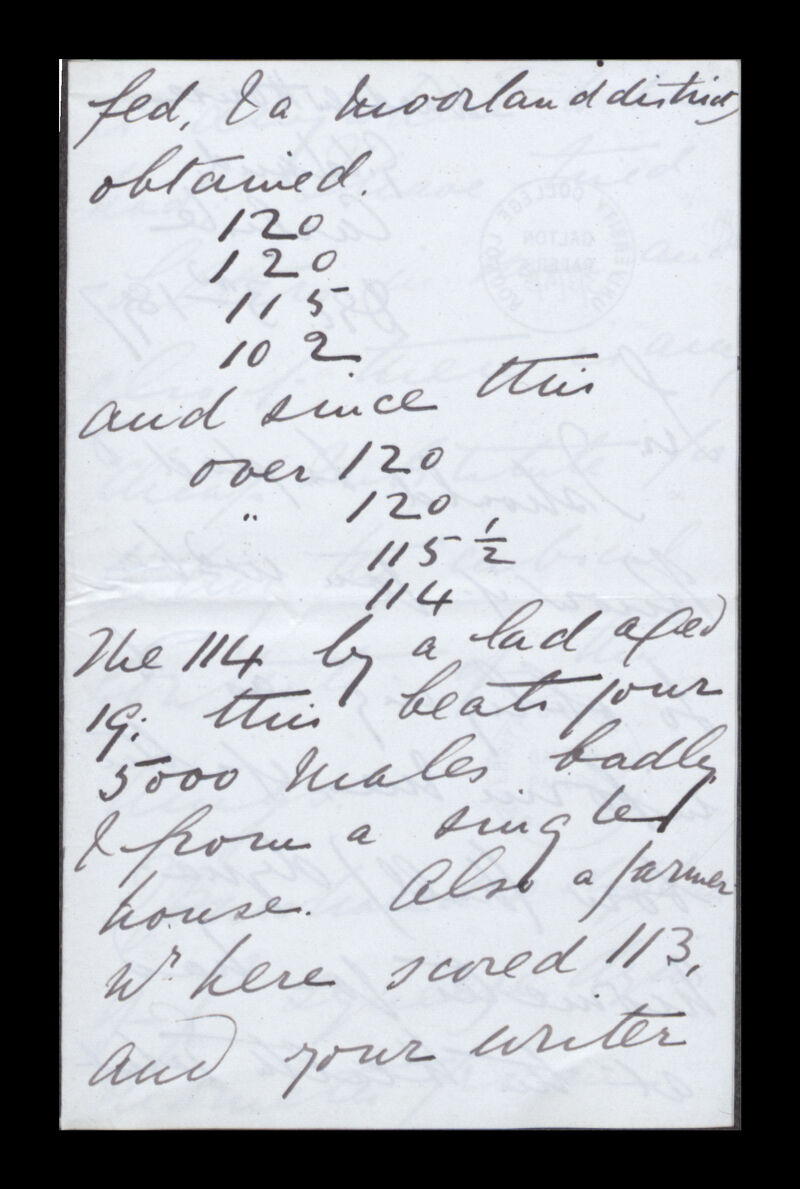 fed, & a moorland district,
obtained.
120
120
115
102
and since this
over 120
" 120
115 ½
114
The 114 by a lad aged
19: this beats your
5000 males badly
& from a single
house. Also a farmer
here scored 113,
and your writer
COLLEGE
GALTON
PAPERS